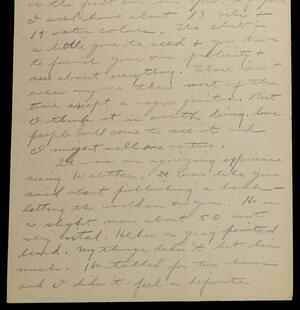 is the first one in
I will have about 13 oils &
19 water colors. The club is
a little gone to seed & you have
to furnish your own publicity &
see about everything. There isn't
even any one there most of the
time except a negro janitor. But
I think it is worth doing. Some
people will come to see it and
I might sell one or two.
It was an agonizing experience
seeing Walther. It was like you
said about publishing a book—
letting the world in on you. He is
a slight man about 50 not
very vital. He has a grey pointed
beard. My things didn't get him
much. He talked for two hours
and I didn't feel a definite